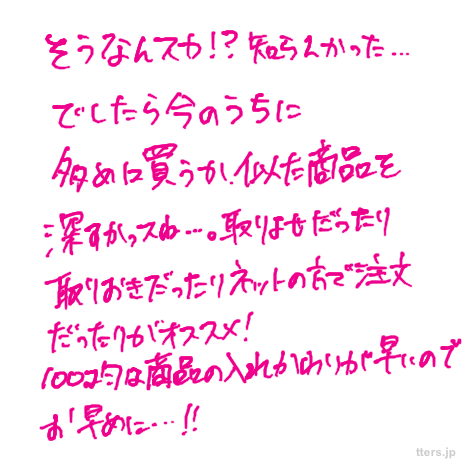 そうなんスか!?知らんかった…
でしたら今のうちに
多めに買うか、似た商品を
深すかっスね…。取りよせだったり
取りおきだったりネットの方で注文
だったりがオススメ!
100コ均は商品の入れかわりが早いので
お早めに…!!
tters.jp